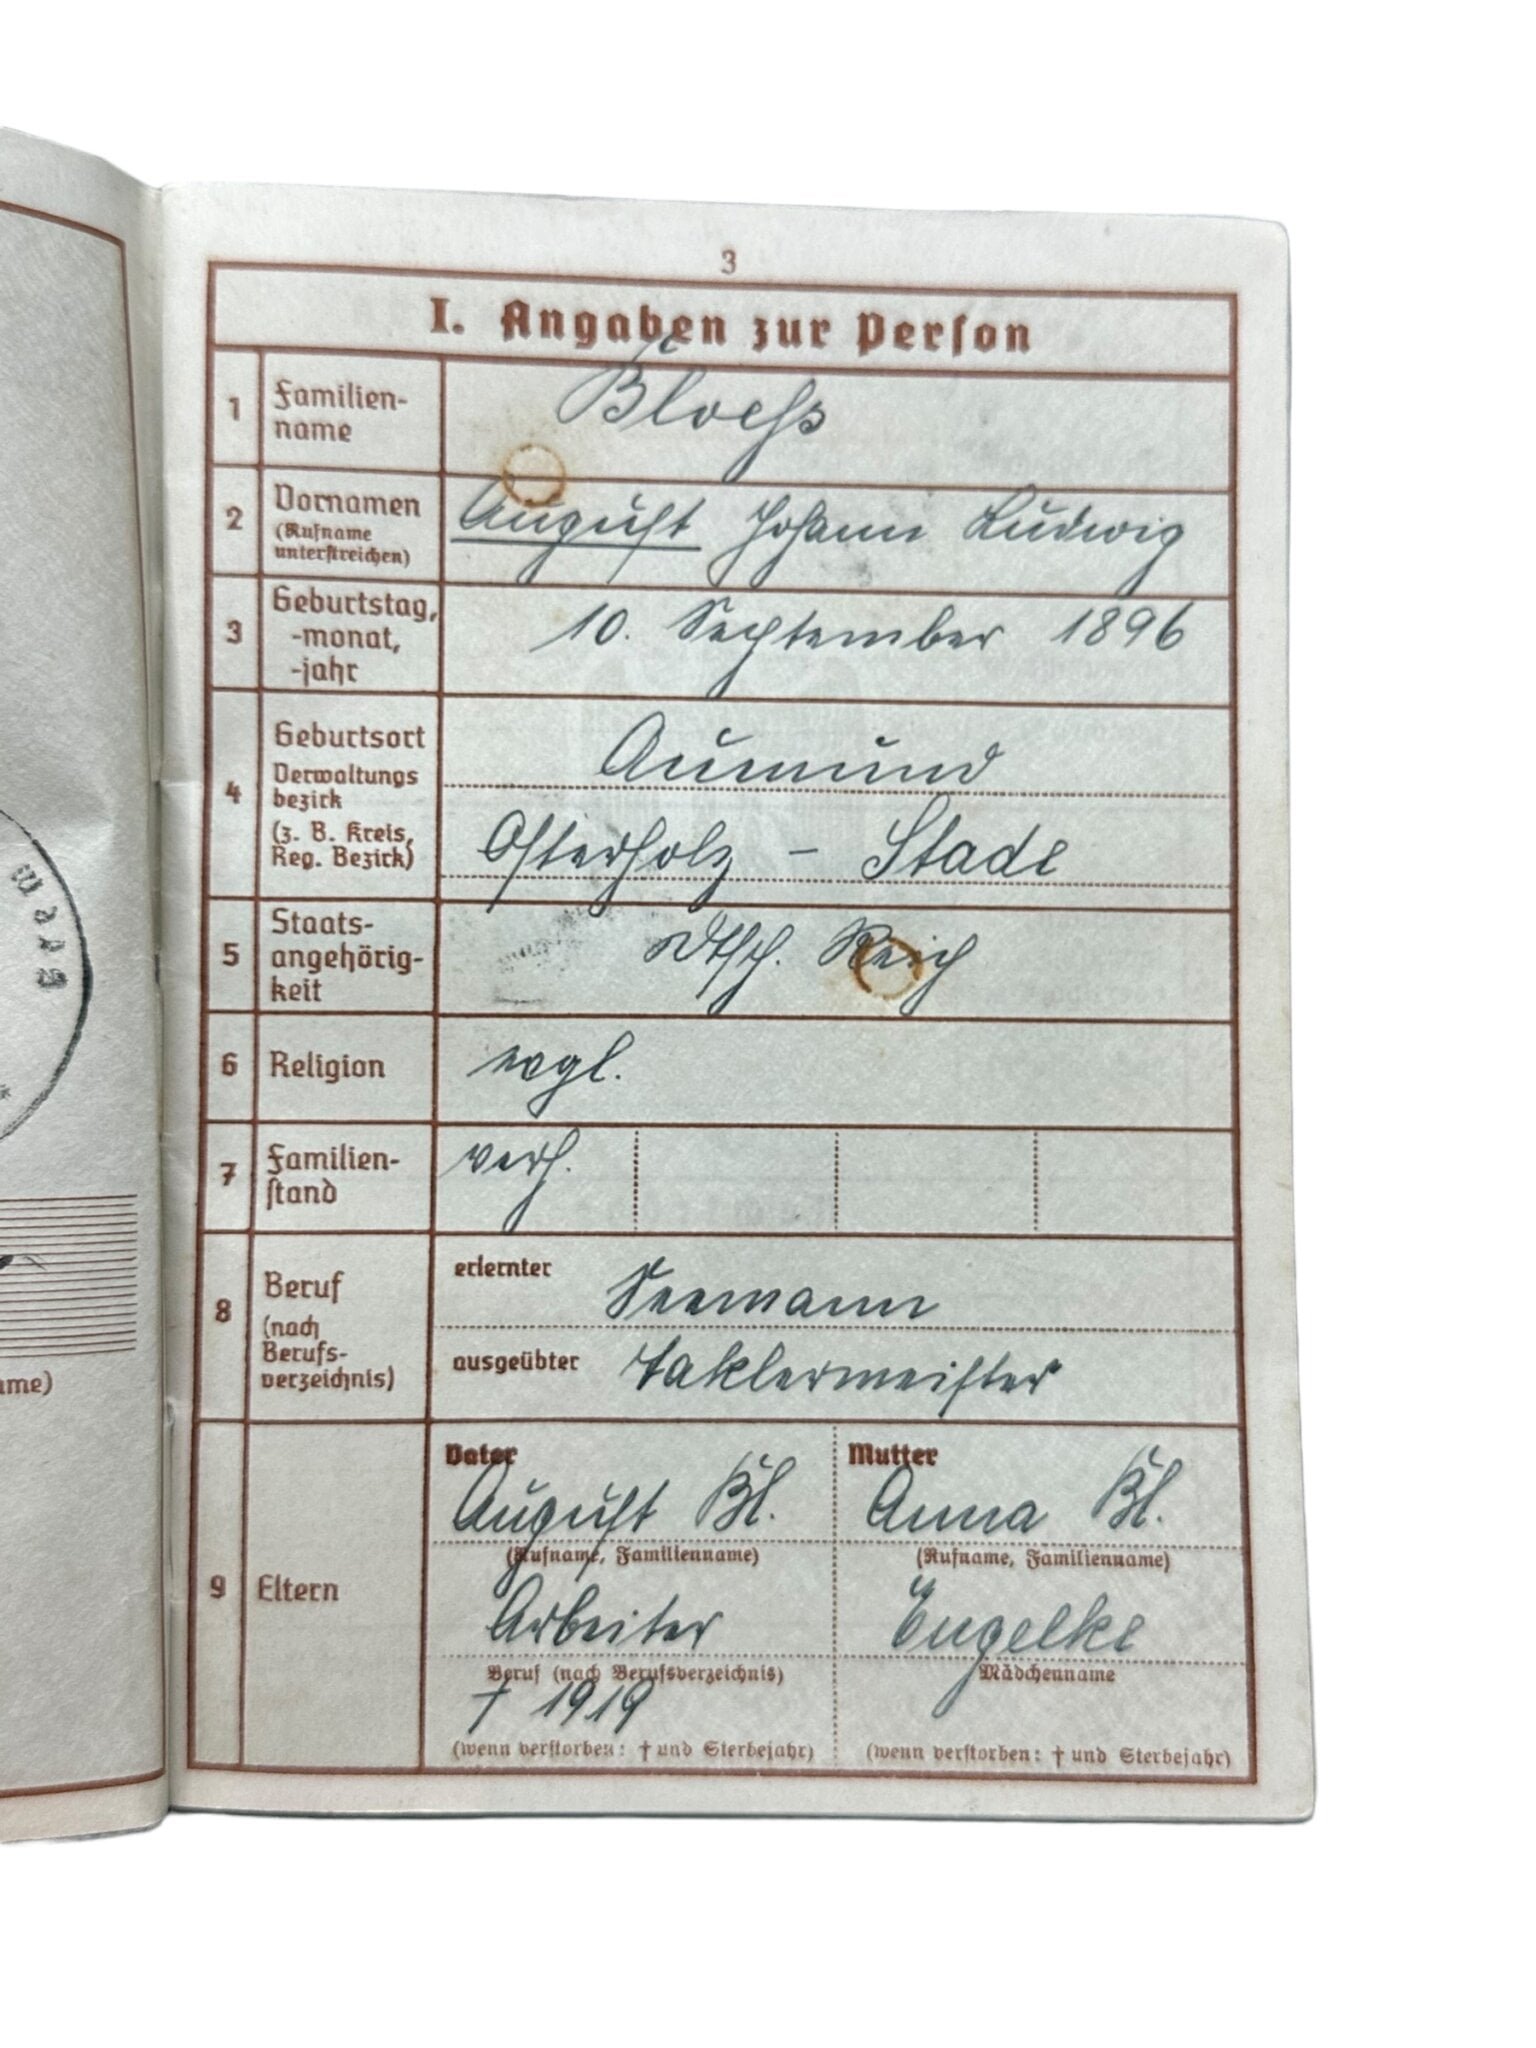 3
I. Angaben zur Person
1 Familien-
name
Bloeß
2 Vornamen
(Rufname
unterstreichen)
August Johann Ludwig
3 Geburtstag,
-monat,
-jahr
10. September 1896
4 Geburtsort
Verwaltungs
bezirk
(z. B. Kreis,
Reg. Bezirk)
Aumund
Osterholz – Stade
5 Staats-
angehörig-
keit
Dtsch. Reich
6 Religion
evgl.
7 Familien-
stand
verh.
8 Beruf
(nach
Berufs-
verzeichnis)
erlernter Seemann
ausgeübter Taklermeister
9 Eltern
Vater
August Bl.
(Rufname, Familienname)
Arbeiter
Beruf (nach Berufsverzeichnis)
† 1919
(wenn verstorben: † und Sterbejahr)
Mutter
Anna Bl.
(Rufname, Familienname)
Engelke
Mädchenname
(wenn verstorben: † und Sterbejahr)
ame)